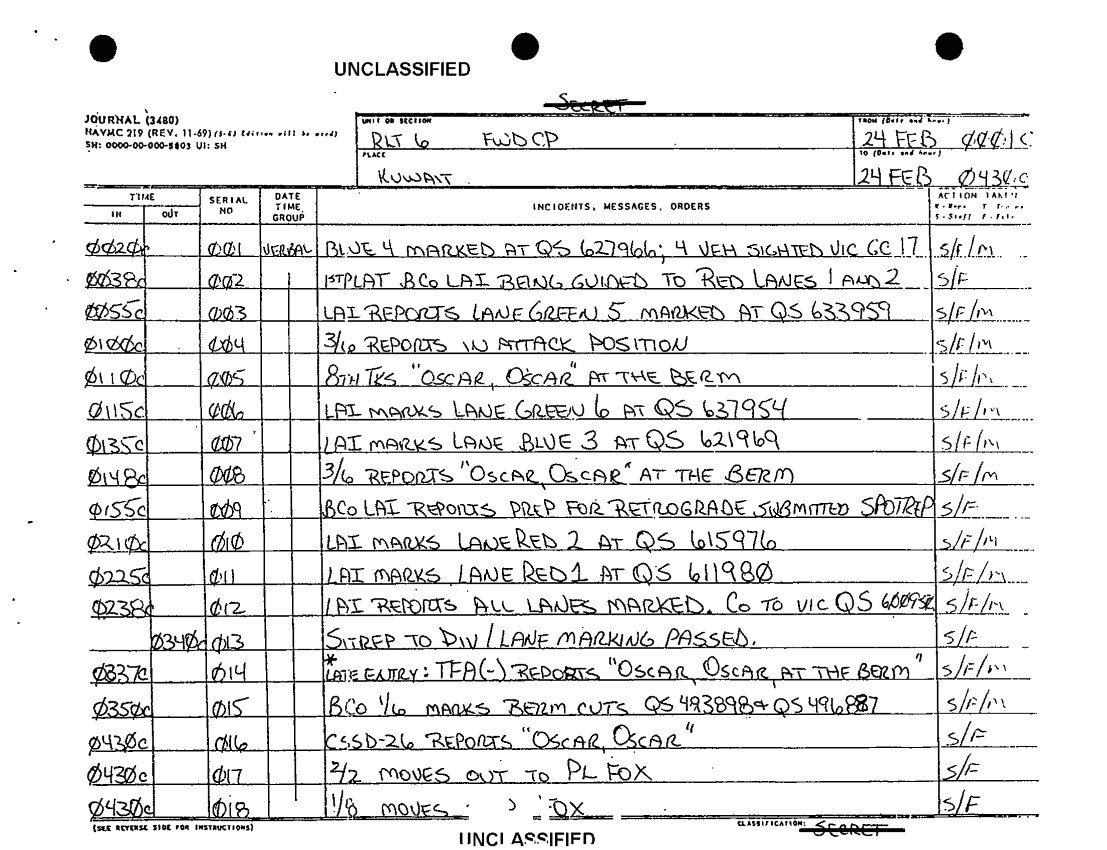 UNCLASSIFIED
SECRET
JOURNAL (3480)
NAVMC 219 (REV. 11-69) (5-63 Edition will be used)
SN: 0000-00-000-5803 UI: SH
UNIT OR SECTION
RLT 6 FWD CP
PLACE
KUWAIT
FROM (Date and hour)
24 FEB 0001C
TO (Date and hour)
24 FEB 0430C
TIME
IN OUT
SERIAL NO
DATE TIME GROUP
INCIDENTS, MESSAGES, ORDERS
ACTION TAKEN
S - Staff F - File
0020c 001 VERBAL BLUE 4 MARKED AT QS 627966; 4 VEH SIGHTED VIC GC 17 S/F/M
0038c 002 1STPLAT BCO LAI BEING GUIDED TO RED LANES 1 AND 2 S/F
0055c 003 LAI REPORTS LANE GREEN 5 MARKED AT QS 633959 S/F/M
0100c 004 3/6 REPORTS IN ATTACK POSITION S/F/M
0110c 005 8TH TKS "OSCAR, OSCAR" AT THE BERM S/F/M
0115c 006 LAI MARKS LANE GREEN 6 AT QS 637954 S/F/M
0135c 007 LAI MARKS LANE BLUE 3 AT QS 621969 S/F/M
0148c 008 3/6 REPORTS "OSCAR, OSCAR" AT THE BERM S/F/M
0155c 009 BCO LAI REPORTS PREP FOR RETROGRADE SUBMITTED SPOTREP S/F
0210c 010 LAI MARKS LANE RED 2 AT QS 615976 S/F/M
0225c 011 LAI MARKS LANE RED 1 AT QS 611980 S/F/M
0238c 012 LAI REPORTS ALL LANES MARKED. CO TO VIC QS S/F/M
0340c 013 SITREP TO DIV / LANE MARKING PASSED. S/F
0337c 014 *LATE ENTRY: TFA(-) REPORTS "OSCAR, OSCAR, AT THE BERM" S/F/M
0350c 015 BCO 1/6 MARKS BERM CUTS QS 493898 & QS 496887 S/F/M
0430c 016 CSSD-26 REPORTS "OSCAR, OSCAR" S/F
0430c 017 2/2 MOVES OUT TO PL FOX S/F
0430c 018 1/8 MOVES OX S/F
(SEE REVERSE SIDE FOR INSTRUCTIONS)
CLASSIFICATION: SECRET
UNCLASSIFIED